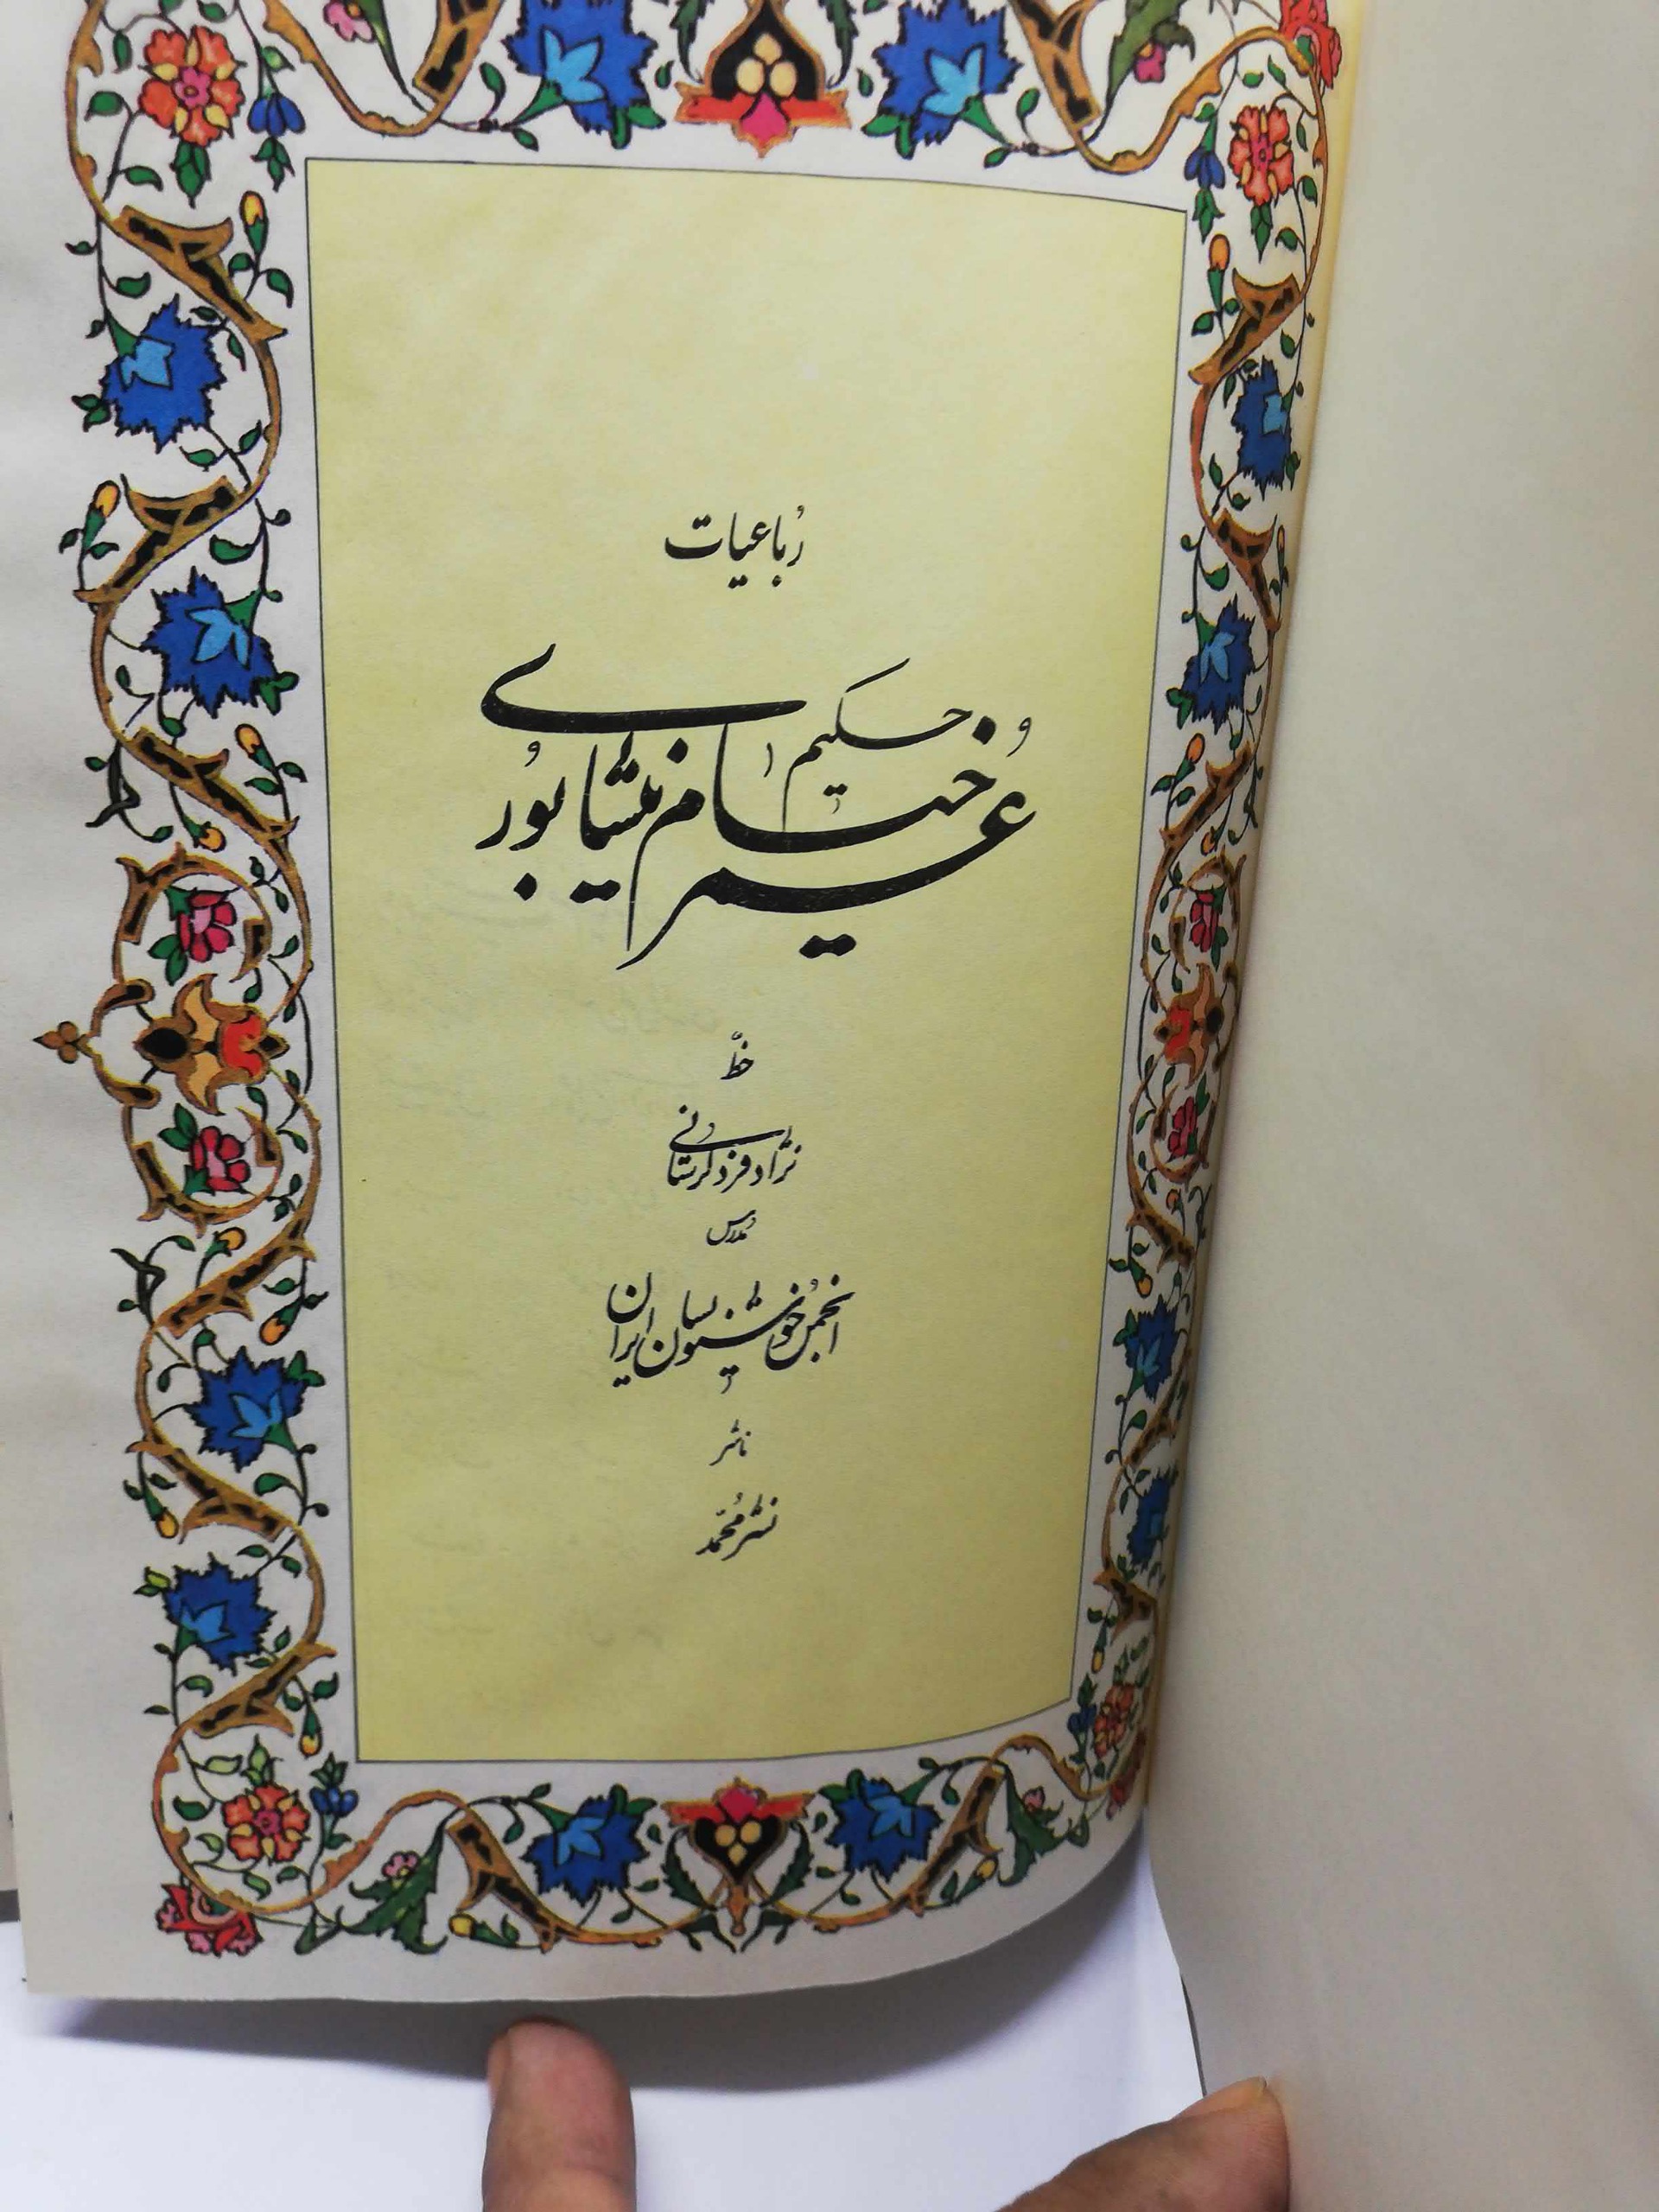 رُباعیات
حکیم عُمر خیّام نیشابوُری
خطّ
نژادفرد لرستانی
مدرس
انجمن خوشنویسان ایران
ناشر
نشر مُحمّد